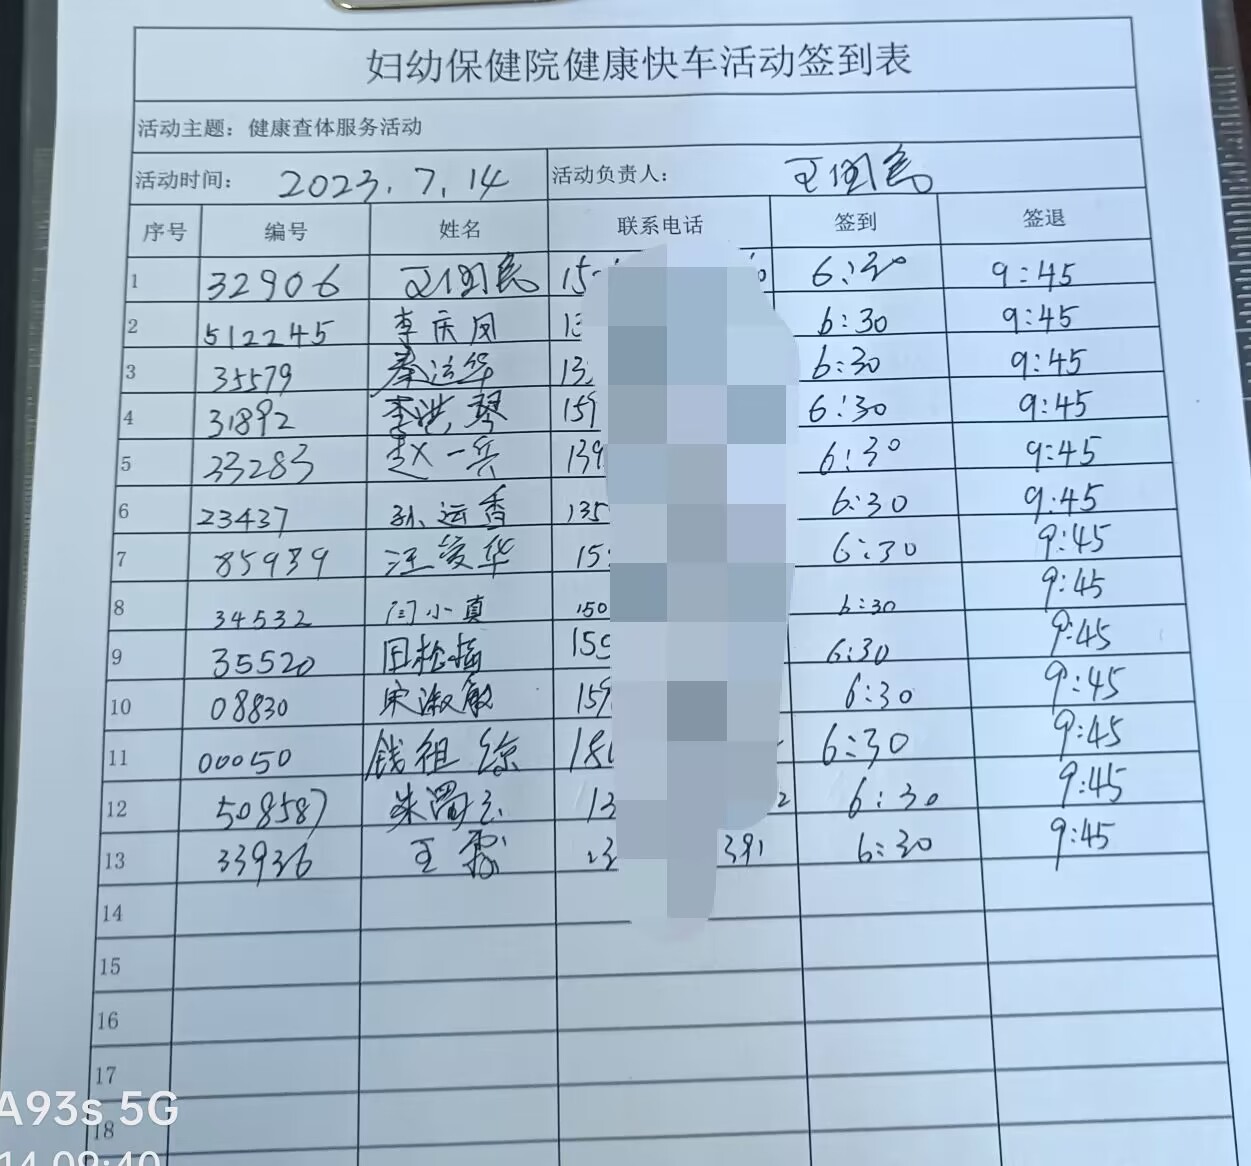 妇幼保健院健康快车活动签到表
活动主题：健康查体服务活动
活动时间： 2023.7.14 活动负责人： 王国
序号 编号 姓名 联系电话 签到 签退
1 32906 王国 15 6:30 9:45
2 512245 李庆凤 13 6:30 9:45
3 35579 秦运华 13 6:30 9:45
4 31892 李洪琴 159 6:30 9:45
5 33283 赵一兵 139 6:30 9:45
6 23437 孙运香 135 6:30 9:45
7 85939 汪爱华 15 6:30 9:45
8 34532 闫小真 150 6:30 9:45
9 35520 田松梅 159 6:30 9:45
10 08830 宋淑敏 159 6:30 9:45
11 00050 钱祖琼 18 6:30 9:45
12 508587 朱 13 2 6:30 9:45
13 33936 王霞 391 6:30 9:45
14
15
16
17
18
A93s 5G
14 09:40